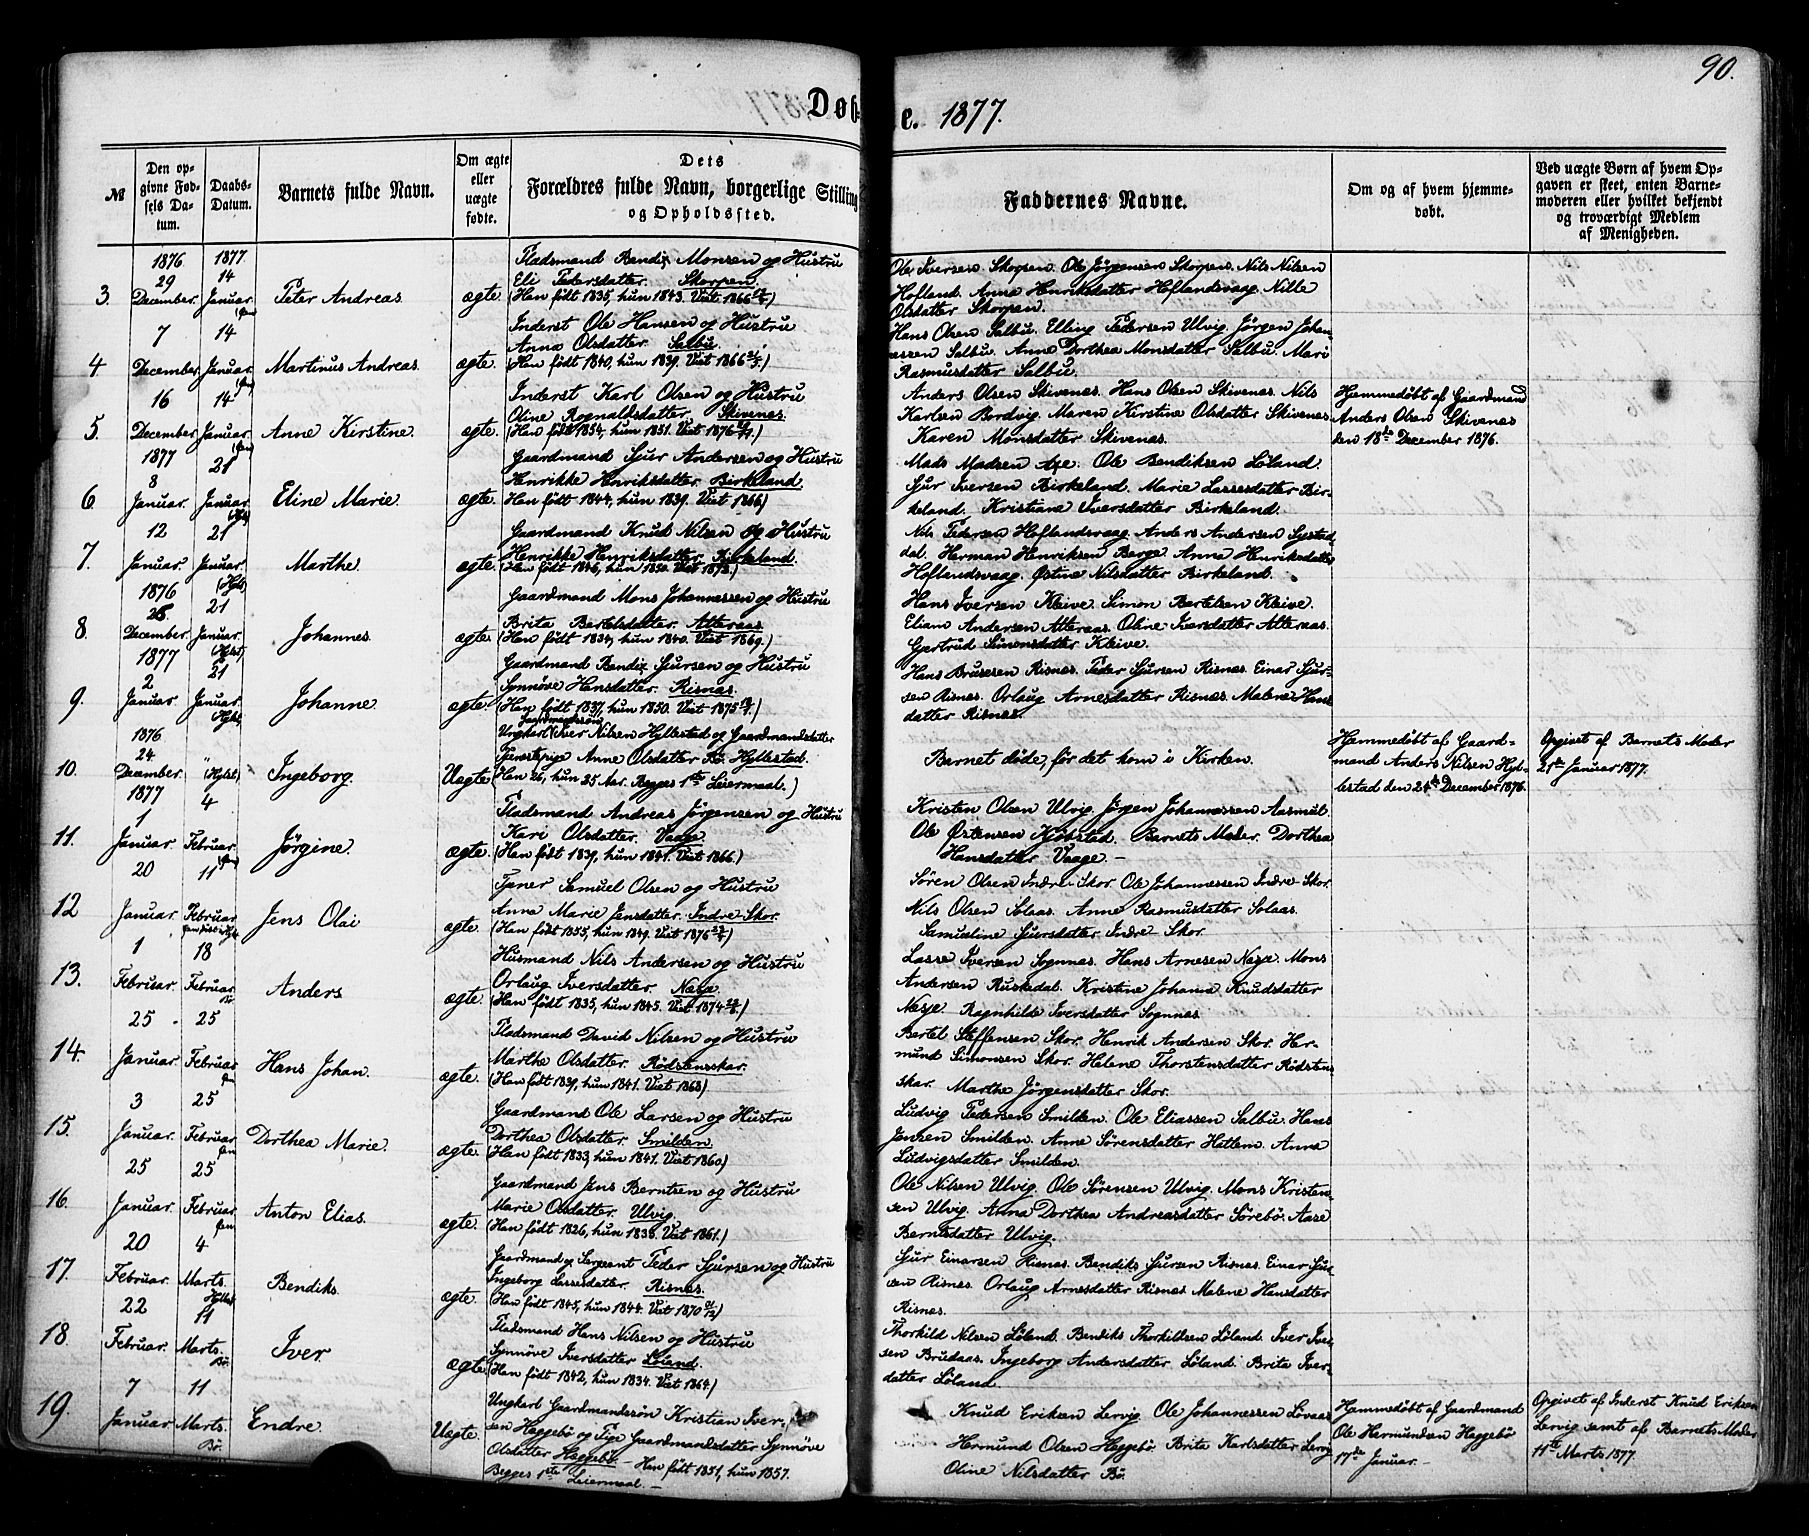 90.
Døbte. 1877.
№
Den opgivne Fødsels Datum.
Daabs-Datum.
Barnets fulde Navn.
Om ægte eller uægte fødte.
Dets Forældres fulde Navn, borgerlige Stilling og Opholdssted.
Faddernes Navne.
Om og af hvem hjemmedøbt.
Ved uægte Børn af hvem Opgaven er skeet, enten Barnemoderen eller hvilket bekjendt og troværdigt Medlem af Menigheden.
3.
1876 29 December
1877 14 Januar
Peter Andreas
ægte
Pladsmand Bendix Monsen og Hustru
Eli Pedersdatter. Skorpen
(Han født 1835, hun 1843. Viet 1866
Ole Iversen Skorpen. Ole Jörgensen Skorpen. Nils Nilsen
Hofland. Anna Henriksdatter Hoflandsvaag. Nille
Olsdatter Skorpen
4
7 December
14 Januar
Martinus Andreas.
ægte.
Inderst Ole Hansen og Hustru
Anna Olsdatter. Salbu.
(Han født 1840, hun 1839. Viet 1866
Hans Olsen Salbu. Elling Pedersen Ulvig. Jörgen Johan-
nessen Salbu. Anne Dorthea Monsdatter Salbu. Mari
Rasmusdatter Salbu.
5.
16 December
14 Januar
Anne Kirstine.
ægte.
Inderst Karl Olsen og Hustru
Oline Rognaldsdatter. Skivenes.
(Han født 1854, hun 1851. Viet 1876
Anders Olsen Skivenes. Hans Olsen Skivenes. Nils
Karlsen Bordvig. Maren Kirstine Olsdatter Skivenes
Karen Monsdatter Skivenes.
Hjemmedöbt af Gaardmand
Anders Olsen Skivenes
den 18de December 1876.
6.
1877 8 Januar.
21 Januar.
Eline Marie
ægte.
Gaardmand Sjur Andersen og Hustru
Henrikke Henriksdatter. Birkeland.
(Han født 1844, hun 1839. Viet 1866)
Mads Madsen Axe. Ole Bendiksen Löland.
Sjur Iversen Birkeland. Marie Lassesdatter Bir-
keland. Kristiane Iversdatter Birkeland.
7.
12 Januar.
21 Januar.
Marthe
ægte.
Gaardmand Knud Nilsen og Hustru
Henrikke Henriksdatter. Birkeland.
(Han født 1846, hun 1850. Viet 1873.)
Nils Pedersen Hoflandsvaag. Anders Andersen Systad-
dal. Herman Henriksen Berge. Anna Henriksdatter
Hoflandsvaag. Østine Nilsdatter Birkeland.
8.
1876 December
(Hylst) 21 Januar.
Johannes.
ægte
Gaardmand Mons Johannessen og Hustru
Brita Bertelsdatter. Atteraas
(Han født 1834, hun 1840. Viet 1869.)
Hans Iversen Kleive. Simon Bertelsen Kleive.
Eliam Andersen Atteraas. Oline Iversdatter Atteraas.
Gjertrud Simonsdatter Kleive.
9.
1877 2 Januar.
(Hylst) 21 Januar.
Johanne.
ægte.
Gaardmand Bendix Sjursen og Hustru
Synnöve Hansdatter. Risnes.
(Han født 1837, hun 1850. Viet 1875
Hans Brusesen Risnes. Peder Sjursen Risnes. Einar Sjur-
sen Risnes. Orlaug Arnesdatter Risnes. Malene Hans-
datter Risnes.
10.
1876 24. December
" (Hylst)
Ingeborg.
Uægte.
Ungkarl Gaardmandssön Iver Nilsen Hyllestad og Gaardmandsdatter
Tjenestepige Anne Olsdatter Bö. Hyllestad.
(Han 26, hun 25 Aar. Begges 1ste Leiermaal.)
Barnet döde, för det kom i Kirken.
Hjemmedöbt af Gaard-
mand Anders Nilsen Hyl-
lestad den 24de December 1876.
Opgivet af Barnets Moder
21de Januar 1877.
11.
1877 1 Januar.
4 Februar.
Jørgine.
ægte.
Pladsmand Andreas Jörgensen og Hustru
Kari Olsdatter. Vaage.
(Han født 1839, hun 1841. Viet 1866.)
Kristen Olsen Ulvig. Jörgen Johannessen Aasmul.
Ole Østensen Kjöbstad. Barnets Moder. Dorthea
Hansdatter Vaage. –
12
20 Januar
11 Februar
Jens Olai
ægte.
Tjener Samuel Olsen og Hustru
Anna Marie Jensdatter. Indre-Skor.
(Han født 1855, hun 1849. Viet 1876
Sören Olsen Indre-Skor. Ole Johannessen Indre-Skor.
Nils Olsen Solaas. Anne Rasmusdatter Solaas.
Samueline Sjursdatter Indre-Skor.
13.
1 Februar.
18 Februar. Bö.
Anders
ægte.
Husmand Nils Andersen og Hustru
Orlaug Iversdatter. Nesje.
(Han født 1835, hun 1845. Viet 1874
Lasse Iversen Sognnes. Hans Arnesen Nesje. Mons
Andersen Ruskedal. Kristine Johanna Knudsdatter
Nesje. Ragnhilde Iversdatter Sognnes.
14.
25 Januar.
25 Februar
Hans Johan.
ægte.
Pladsmand David Nilsen og Hustru
Marthe Olsdatter. Rödsensskar.
(Han født 1839, hun 1841. Viet 1863)
Bertel Steffensen Skor. Henrik Andersen Skor. Her-
mund Simonsen Skor. Helene Thorstensdatter Rödsens-
skar. Marthe Jörgensdatter Skor.
15.
3 Januar.
25 Februar.
Dorthea Marie.
ægte.
Gaardmand Ole Larsen og Hustru
Dorthea Olsdatter. Smilden.
(Han født 1833, hun 1841. Viet 1860)
Ludvig Pedersen Smilden. Ole Eliassen Salbu. Hans
Jensen Smilden. Anne Sörensdatter Hatlem. Anna
Ludvigsdatter Smilden.
16.
25 Januar.
25 Februar.
Anton Elias.
ægte.
Gaardmand Jens Berntsen og Hustru
Marie Olsdatter. Ulvig.
(Han født 1826, hun 1838. Viet 1861.)
Ole Nilsen Ulvig. Ole Sörensen Ulvig. Mons Kristen-
sen Ulvig. Anna Dorthea Andreasdatter Sörebö. Aase
Berntsdatter Ulvig.
17.
20 Februar.
4 Marts. Hyllest
Bendiks
ægte.
Gaardmand og Sergeant Peder Sjursen og Hustru
Ingeborg Lassesdatter. Risnes.
(Han født 1845, hun 1844. Viet 1870
Sjur Einarsen Risnes. Bendiks Sjursen Risnes. Einar Sjur-
sen Risnes. Orlaug Arnesdatter Risnes Malene Hansdatter
Risnes.
18
22 Februar.
11 Marts. Bö.
Iver
ægte.
Pladsmand Hans Nilsen og Hustru
Synnöve Iversdatter Löland.
(Han født 1842, hun 1834. Viet 1864.)
Thorkild Nilsen Löland. Bendiks Thorkildsen Löland. Iver Iver-
sen Bruaas. Ingeborg Andersdatter Löland. Brita Iver-
datter Löland.
19.
7 Januar
11 Marts. Bö.
Endre.
Uægte.
Ungkarl Gaardmandssön Kristian Iver-
sen Haggebö og Pige Gaardmandsdatter Synnöve
Olsdatter Haggebö – Han født 1851, hun 1857.
Begges 1ste Leiermaal. –
Knud Eriksen Lervig. Ole Johannessen Lovaas
Hermund Olsen Haggebö. Brita Karlsdatter Lervig
Oline Nilsdatter Bö.
Hjemmedöbt af Gaardmand
Ole Hermundsen Haggebö
17de Januar. –
Opgivet af Inderst Knud Eriksen
Lervig samt af Barnets Moder
11te Marts 1877.